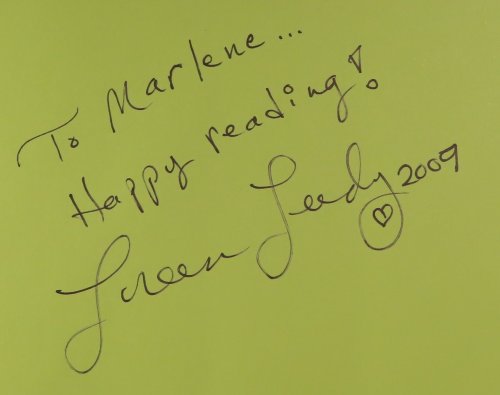 To Marlene...
Happy reading!
Loreen Leedy 2009